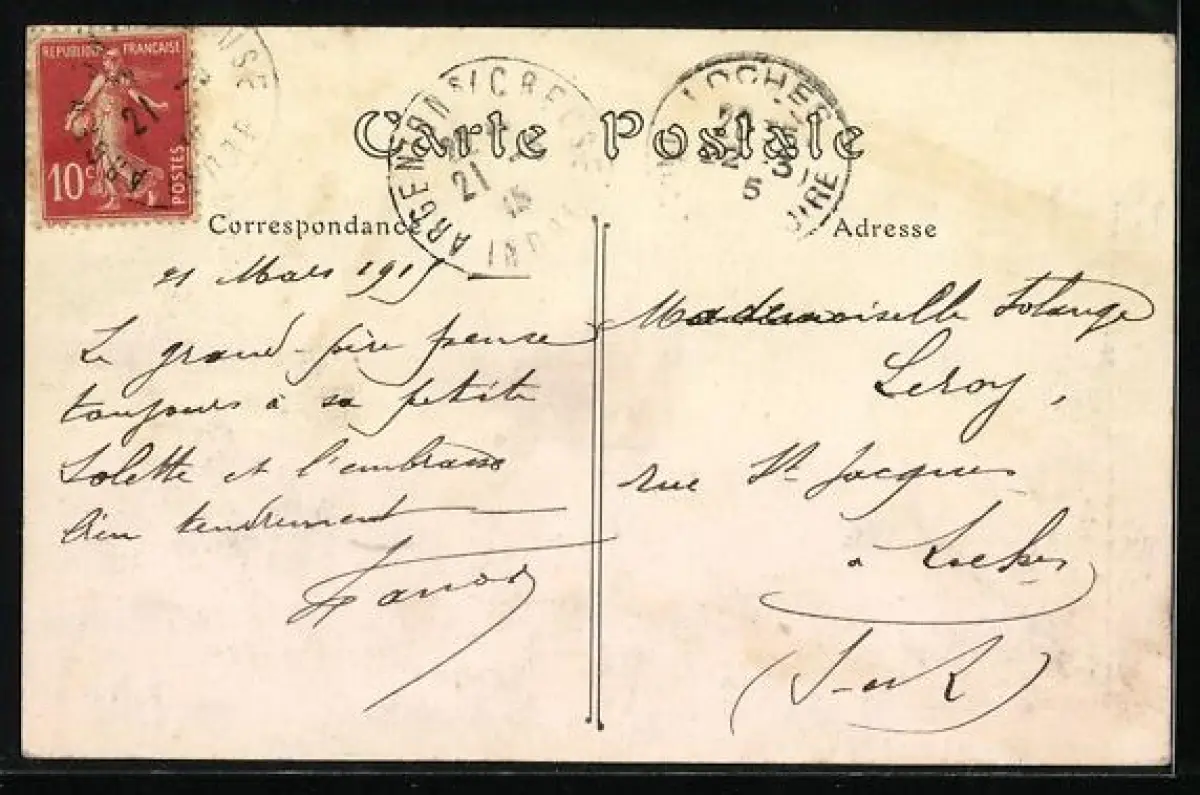 REPUBLIQUE FRANÇAISE
10c
POSTES
Carte Postale
ARGENTON S/ CREUSE
21
15
INDRE
LOCHES
22 3
5
Correspondance
Adresse
21 Mars 1915
Le grand-père pense
toujours à sa petite
Solette et l'embrasse
bien tendrement
Mademoiselle Solange
Leroy,
rue St Jacques
à Loches
(I-et-L)